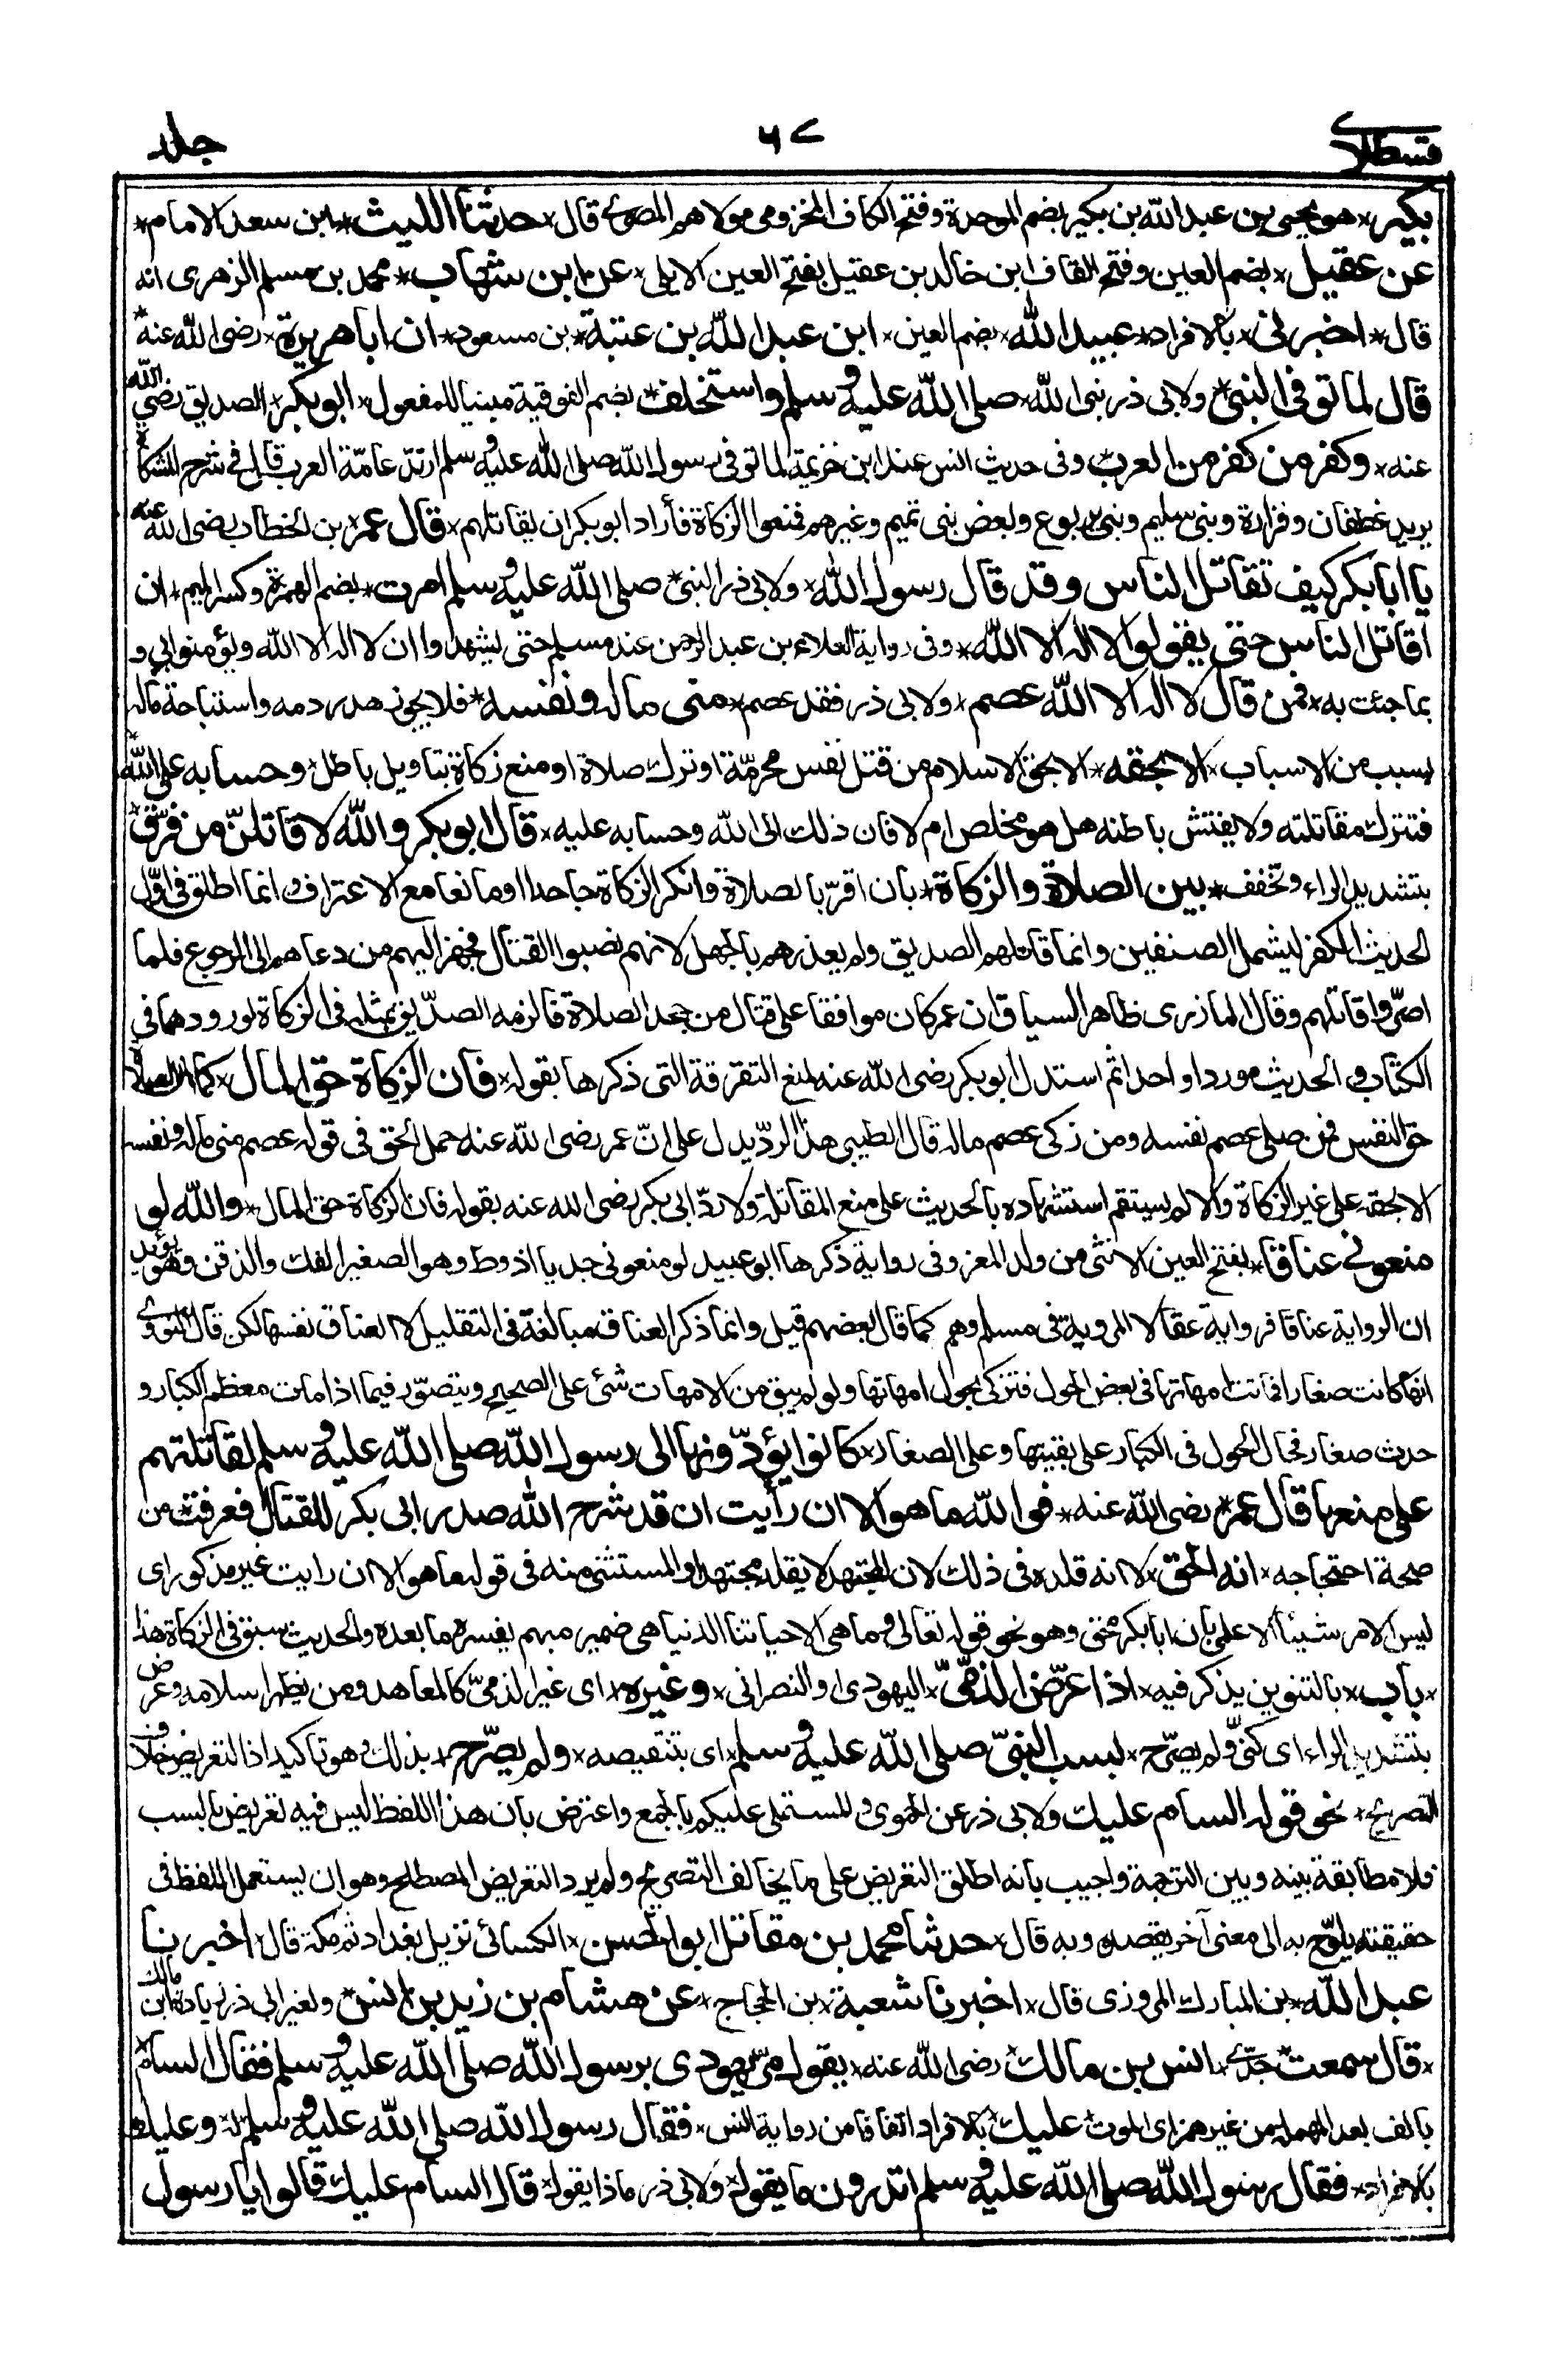 قسطلاني
٦٧
جلد
بكير* هو يحيى بن عبد الله بن بكير بضم الموحدة وفتح الكاف المخزومى مولاهم المصرى قال* حدثنا الليث* ابن سعد الامام*
عن عقيل* بضم العين وفتح القاف ابن خالد بن عقيل بفتح العين الايلى* عن ابن شهاب* محمد بن مسلم الزهرى انه
قال* اخبرنى* بالافراد* عبيد الله* بضم العين* ابن عبد الله بن عتبة* بن مسعود* ان ابا هريرة* رضى الله عنه*
قال لما توفى النبى* ولابى ذر نبى الله* صلى الله عليه وسلم واستخلف* بضم الفوقية مبنيا للمفعول* ابو بكر* الصديق رضى الله
عنه* وكفر من كفر من العرب* وفى حديث انس عند ابن خزيمة لما توفى رسول الله صلى الله عليه وسلم ارتد عامّة العرب قال فى شرح المشكاة*
يريد غطفان وفزارة وبنى سليم وبنى يربوع وبعض بنى تميم وغيرهم فمنعوا الزكاة فأراد ابو بكر ان يقاتلهم* قال عمر* بن الخطاب رضى الله عنه
يا ابا بكر كيف تقاتل الناس وقد قال رسول الله* ولابى ذر النبى* صلى الله عليه وسلم امرت* بضم الهمزة وكسر الميم* ان
اقاتل الناس حتى يقولوا لا اله الا الله* وفى رواية العلاء بن عبد الرحمن عند مسلم حتى يشهدوا ان لا اله الا الله ويؤمنوا بى و
بما جئت به* فمن قال لا اله الا الله عصم* ولابى ذر فقد عصم* منى ماله ونفسه* فلا يجوز هدر دمه واستباحة ماله
بسبب من الاسباب* الا بحقه* الا بحق الاسلام من قتل نفس محرمّة او ترك صلاة او منع زكاة بتاويل باطل* وحسابه على الله*
فنترك مقاتلته ولا يفتش باطنه هل هو مخلص ام لا فان ذلك الى الله وحسابه عليه* قال ابو بكر والله لاقاتلنّ من فرّق*
بتشديد الراء وتخفف* بين الصلاة والزكاة* بان اقرّ بالصلاة وانكر الزكاة جاحدا او مانعا مع الاعتراف وانما اطلق فى اوّل
الحديث الكفر ليشمل الصنفين وانما قاتلهم الصديق ولم يعذرهم بالجهل لانهم نصبوا القتال فجهز اليهم من دعاهم الى الرجوع فلما
اصرّوا قاتلهم وقال المازرى ظاهر السياق ان عمر كان موافقا على قتال من جحد الصلاة فالزمه الصدّيق بمثله فى الزكاة لورودهما فى
الكتاب والحديث موردا واحدا ثم استدل ابو بكر رضى الله عنه لمنع التفرقة التى ذكرها بقوله* فان الزكاة حق المال* كما ان الصلاة
حق النفس فمن صلى عصم نفسه ومن زكى عصم ماله قال الطيبى هذا الردّ يدل على انّ عمر رضى الله عنه حمل الحق فى قوله عصم منى ماله ونفسه
الا بحقه على غير الزكاة والا لم يستقم استشهاده بالحديث على منع المقاتلة ولا ردّ ابى بكر رضى الله عنه بقوله فان الزكاة حق المال* والله لو
منعونى عناقا* بفتح العين الانثى من ولد المعز وفى رواية ذكرها ابو عبيد لو منعونى جديا اذوط وهو الصغير الفك والذقن وهو يؤيد
ان الرواية عناقا فرواية عقالا المروية فى مسلم وهم كما قال بعضهم قيل وانما ذكر العناق مبالغة فى التقليل لا العناق نفسها لكن قال النووى
انها كانت صغارا فماتت امهاتها فى بعض الحول فتزكى بحول امهاتها ولو لم يبق من الامهات شئ على الصحيح ويتصوّر فيما اذا مات معظم الكبار و
حدث صغار فحال الحول فى الكبار على بقيتها وعلى الصغار* كانوا يؤدّونها الى رسول الله صلى الله عليه وسلم لقاتلتهم
على منعها قال عمر* رضى الله عنه* فوالله ما هو الا ان رأيت ان قد شرح الله صدر ابى بكر للقتال فعرفت* من
صحة احتجاجه* انه الحق* لا انه قلده فى ذلك لان المجتهد لا يقلد مجتهدا والمستثنى منه فى قوله ما هو الا ان رايت غير مذكور اى
ليس الامر شيئا الا على بان ابا بكر محق وهو نحو قوله تعالى وما هى الا حياتنا الدنيا هى ضمير مبهم يفسره ما بعده والحديث سبق فى الزكاة هذا
*باب* بالتنوين يذكر فيه* اذا عرّض الذمّىّ* اليهودى او النصرانى* وغيره* اى غير الذمىّ كالمعاهد ومن يظهر اسلامه وعرض
بتشديد الراء اى كنّى ولم يصرّح* بسب النبىّ صلى الله عليه وسلم* اى بتنقيصه* ولم يصرّح* بذلك وهو تاكيد اذ التعريض خلاف
التصريح* نحو قوله السام عليك ولابى ذر عن الحموى والمستملى عليكم بالجمع واعترض بان هذا اللفظ ليس فيه تعريض بالسب
فلا مطابقة بينه وبين الترجمة واجيب بانه اطلق التعريض على ما يخالف التصريح ولم يرد التعريض المصطلح وهو ان يستعمل اللفظ فى
حقيقته يلوّح به الى معنى آخر يقصده وبه قال* حدثنا محمد بن مقاتل ابو الحسن* الكسائى نزيل بغداد ثم مكة قال* اخبرنا
عبد الله* بن المبارك المروزى قال* اخبرنا شعبة* بن الحجاج* عن هشام بن زيد بن انس* ولغير ابى ذر زيادة ابن مالك
*قال سمعت* جدّى* انس بن مالك* رضى الله عنه* يقول مرّ يهودى برسول الله صلى الله عليه وسلم فقال السام*
بالف بعد المهملة من غير همز اى الموت* عليك* بالافراد اتفاقا من رواية انس* فقال رسول الله صلى الله عليه وسلم* له* وعليك*
بالافراد* فقال رسول الله صلى الله عليه وسلم اتدرون ما يقول* ولابى ذر ماذا يقول* قال السام عليك قالوا يا رسول